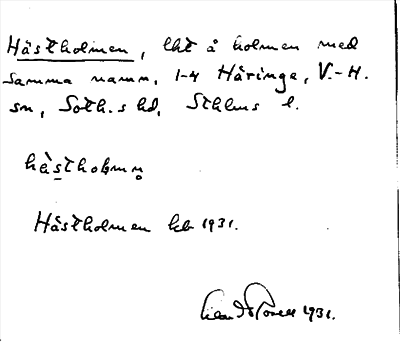 Hästholmen, lht å holmen med
samma namn, 1-4 Häringe, V.-H.
sn, Soth.s hd, Sthlms l.
hästholmn̥
Hästholmen kb 1931.
1931.